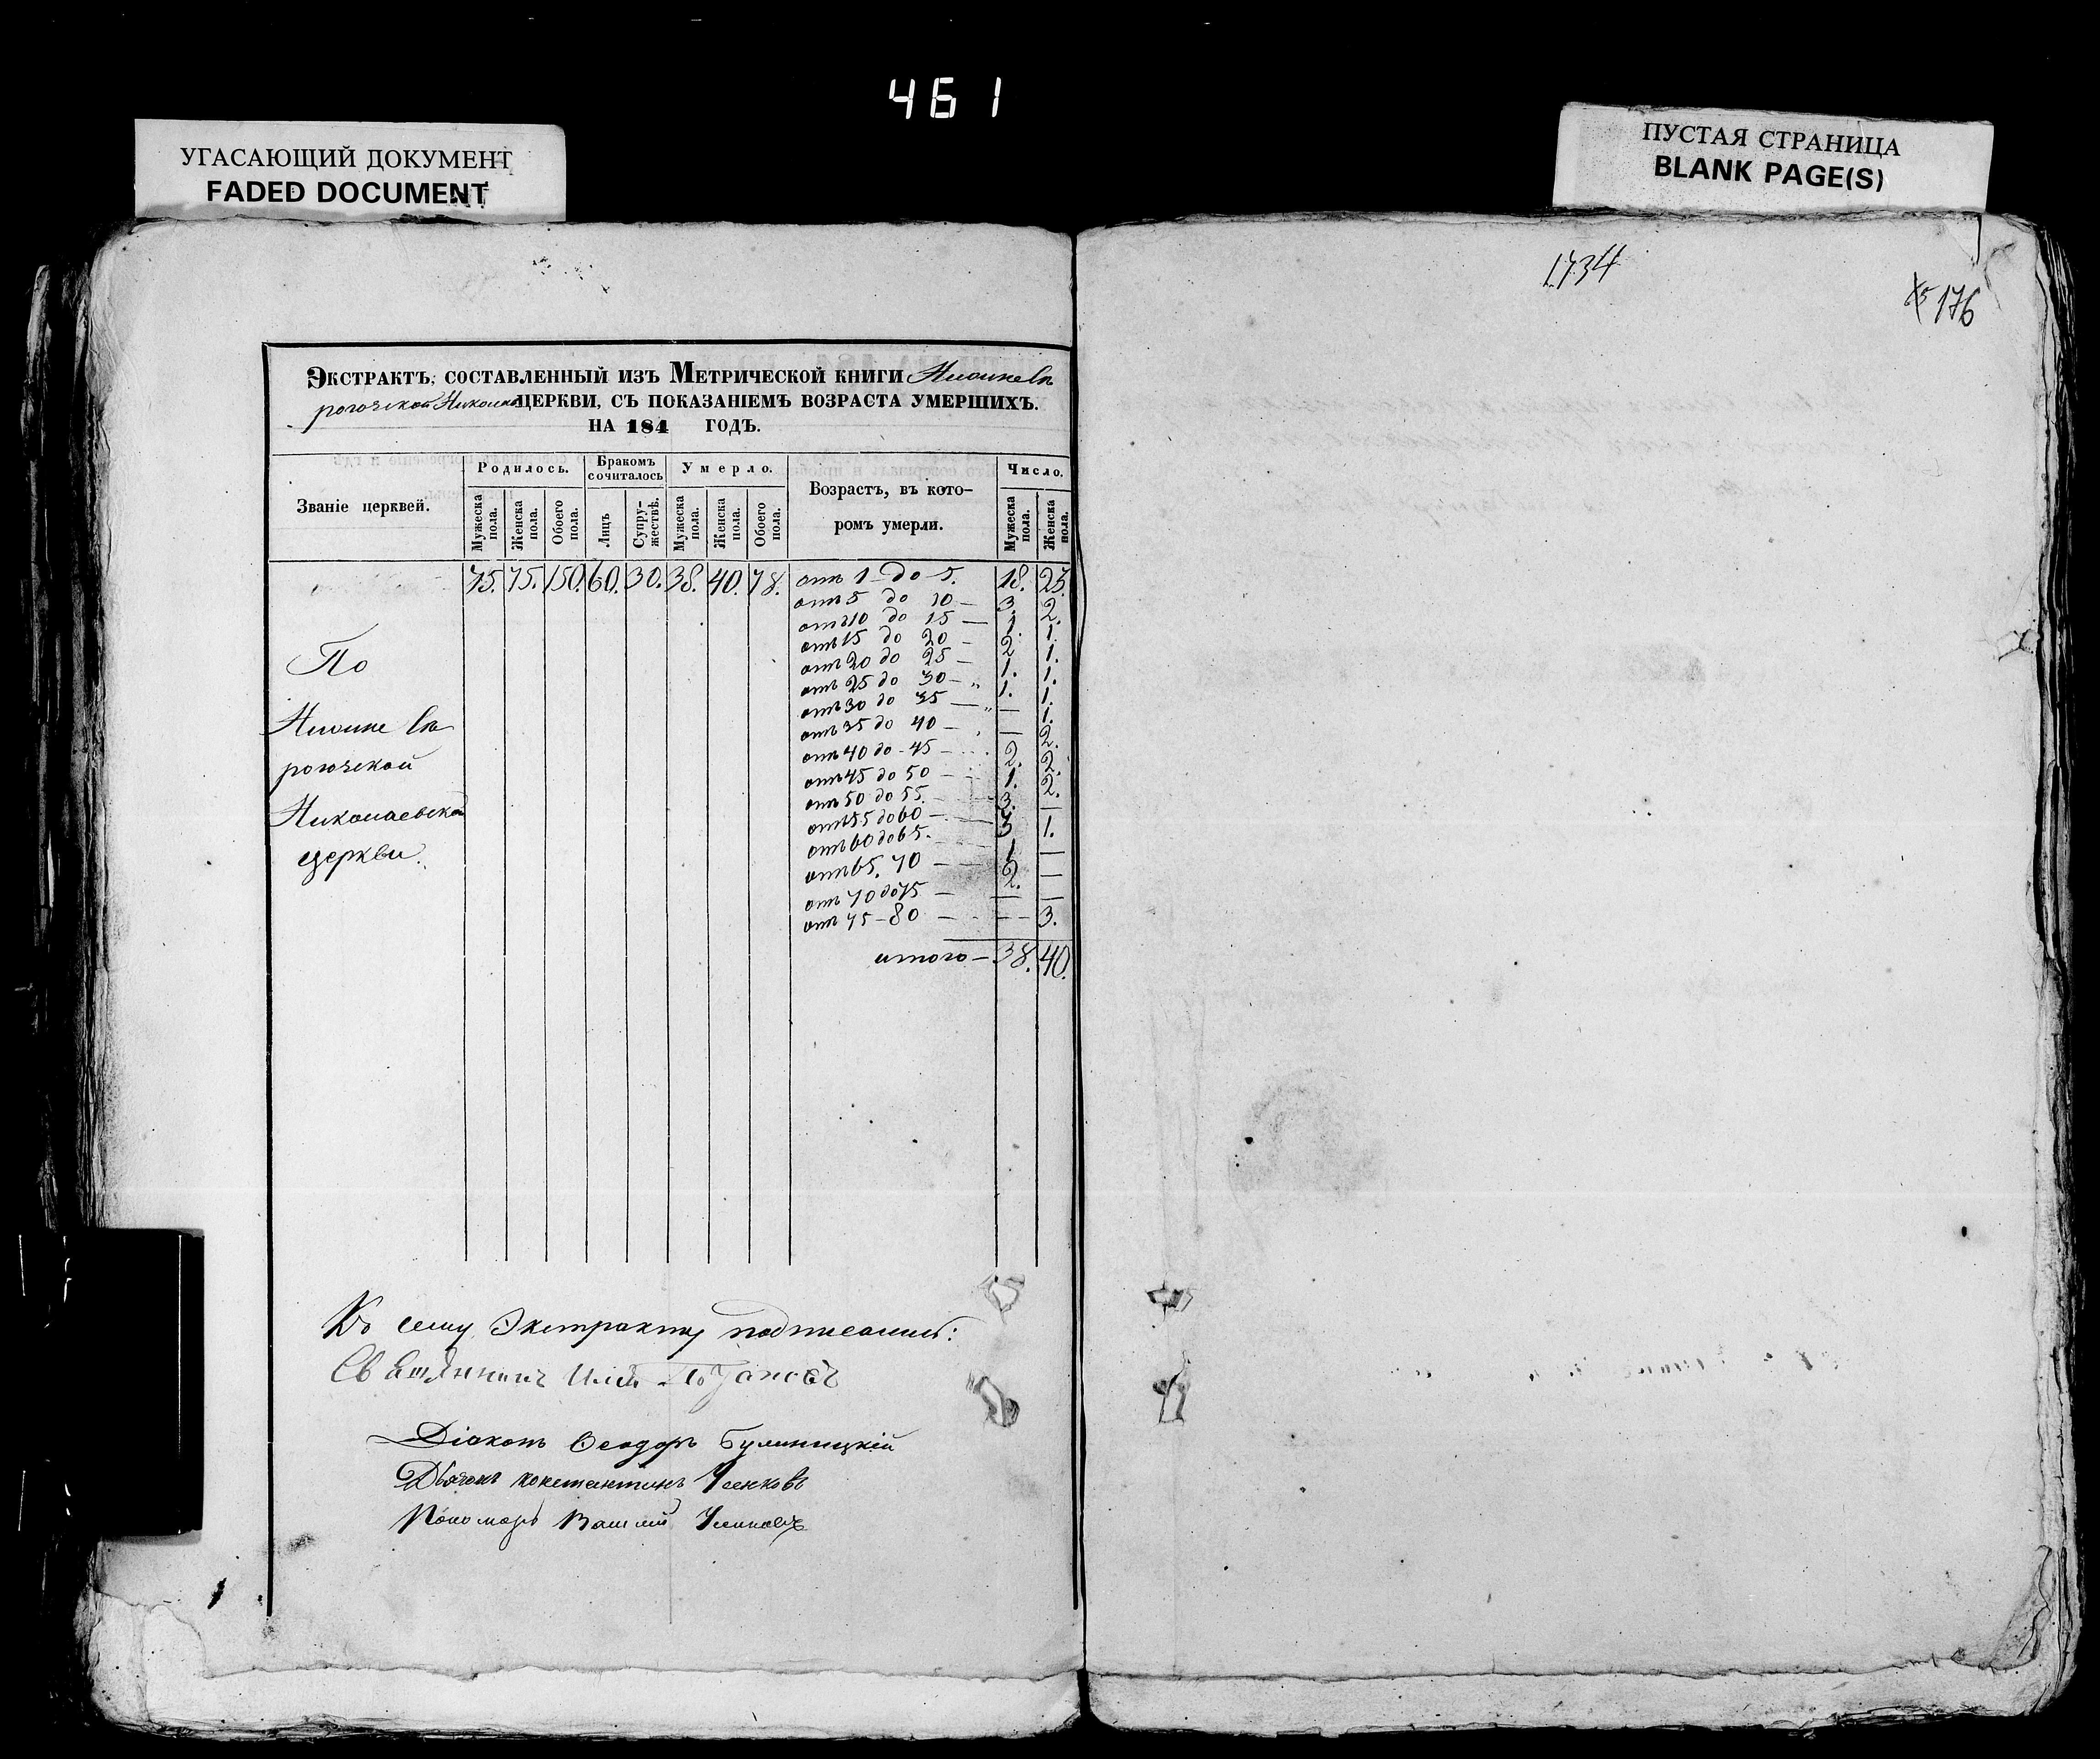 461
УГАСАЮЩИЙ ДОКУМЕНТ
FADED DOCUMENT
ПУСТАЯ СТРАНИЦА
BLANK PAGE(S)
1734
176
Экстрактъ, составленный изъ Метрической книги Нижнесы
рогозской Николаев церкви, съ показаніемъ возраста умершихъ.
на 184 годъ.
Званіе церквей.
Родилось.
Бракомъ сочиталось
Умерло.
Возрастъ, въ кото-
ромъ умерли.
Число.
Мужеска пола. Женска пола. Обоего пола. Лицъ Супру-жествъ. Мужеска пола. Женска пола. Обоего пола. Мужеска пола. Женска пола.
75. 75. 150. 60. 30. 38. 40. 78. отъ 1 до 5. 18. 23.
отъ 5 до 10 — 3. 2.
отъ 10 до 15 — 1. 1.
отъ 15 до 20 — 2. 1.
отъ 20 до 25 — 1. 1.
отъ 25 до 30 — 1. 1.
отъ 30 до 35 — — 1.
отъ 35 до 40 — — 2.
отъ 40 до 45 — 2. 2.
отъ 45 до 50 — 1. 2.
отъ 50 до 55. — 3. —
отъ 55 до 60 — 3 1.
отъ 60 до 65. — 1 —
отъ 65. 70 — 2. —
отъ 70 до 75 — — —
отъ 75 – 80 — — 3.
итого — 38. 40.
По
рогозской
Николаевской
церкви.
Къ сему Экстракту подписались:
Священникъ
Діаконъ Ѳеодоръ
Дьячокъ Константинъ
Пономарь Василій